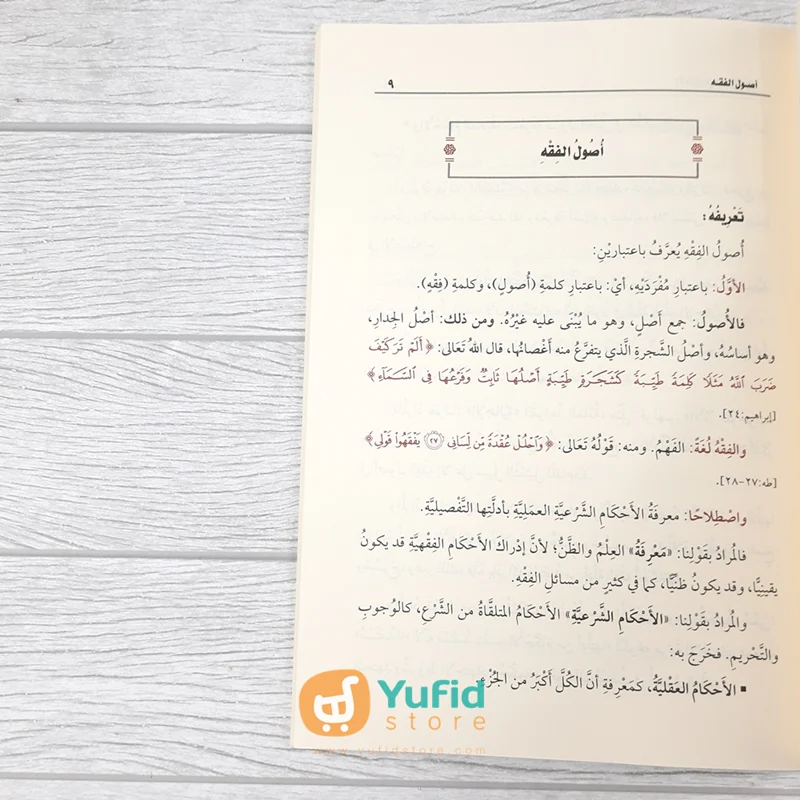 أصول الفقه ٩
أُصُولُ الفِقْهِ
تَعْرِيفُهُ:
أُصولُ الفِقْهِ يُعرَّفُ باعتباريْنِ:
الأوَّلُ: باعتبارِ مُفْرَدَيْهِ، أيْ: باعتبارِ كلمةِ (أُصولٍ)، وكلمةِ (فِقْهٍ).
فالأُصولُ: جمع أَصْلٍ، وهو ما يُبْنَى عليه غيْرُهُ. ومن ذلك: أصْلُ الجِدارِ،
وهو أساسُهُ، وأصْلُ الشَّجرةِ الَّذي يتفرَّعُ منه أغْصانُها، قال اللهُ تَعالى: ﴿أَلَمْ تَرَ كَيْفَ
ضَرَبَ ٱللَّهُ مَثَلًا كَلِمَةً طَيِّبَةً كَشَجَرَةٍ طَيِّبَةٍ أَصْلُهَا ثَابِتٌ وَفَرْعُهَا فِى ٱلسَّمَآءِ﴾
[إبراهيم:٢٤].
والفِقْهُ لُغَةً: الفَهْمُ. ومنه: قَوْلُهُ تَعالى: ﴿وَٱحْلُلْ عُقْدَةً مِّن لِّسَانِى ٢٧ يَفْقَهُوا۟ قَوْلِى﴾
[طه:٢٧-٢٨].
واصْطِلاحًا: معرفةُ الأحْكامِ الشَّرْعيَّةِ العمَليَّةِ بأدلَّتِها التَّفْصيليَّةِ.
فالمُرادُ بقَوْلِنا: «مَعْرِفَةُ» العِلْمُ والظَّنُّ؛ لأنَّ إدْراكَ الأحْكامِ الفِقْهيَّةِ قد يكونُ
يقينيًّا، وقد يكونُ ظنِّيًّا، كما في كثيرٍ من مسائلِ الفِقْهِ.
والمُرادُ بقَوْلِنا: «الأحْكامِ الشَّرْعيَّةِ» الأحْكامُ المتلقَّاةُ من الشَّرْعِ، كالوُجوبِ
والتَّحْريمِ. فخَرَجَ به:
▪ الأحْكامُ العَقْليَّةُ، كمَعْرِفةِ أنَّ الكُلَّ أكْبَرُ من الجُزْءِ.
Yufid
store
www.yufidstore.com